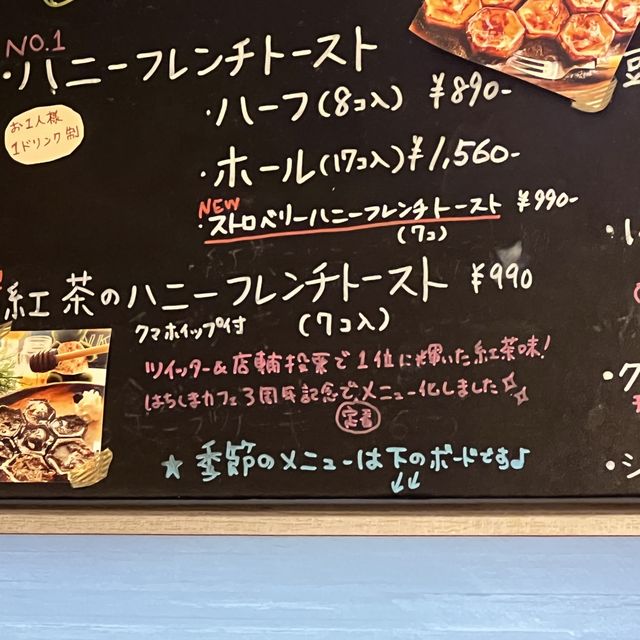 NO.1
・ハニーフレンチトースト
お1人様
1ドリンク制
・ハーフ(8コ入) ¥890-
・ホール(17コ入) ¥1,560-
NEW
・ストロベリーハニーフレンチトースト ¥990-
(7コ)
紅茶のハニーフレンチトースト ¥990
クマホイップ付 (7コ入)
ツイッター&店舗投票で1位に輝いた紅茶味!
はちくまカフェ3周年記念でメニュー化しました
定番
★季節のメニューは下のボードです♪
↓↓